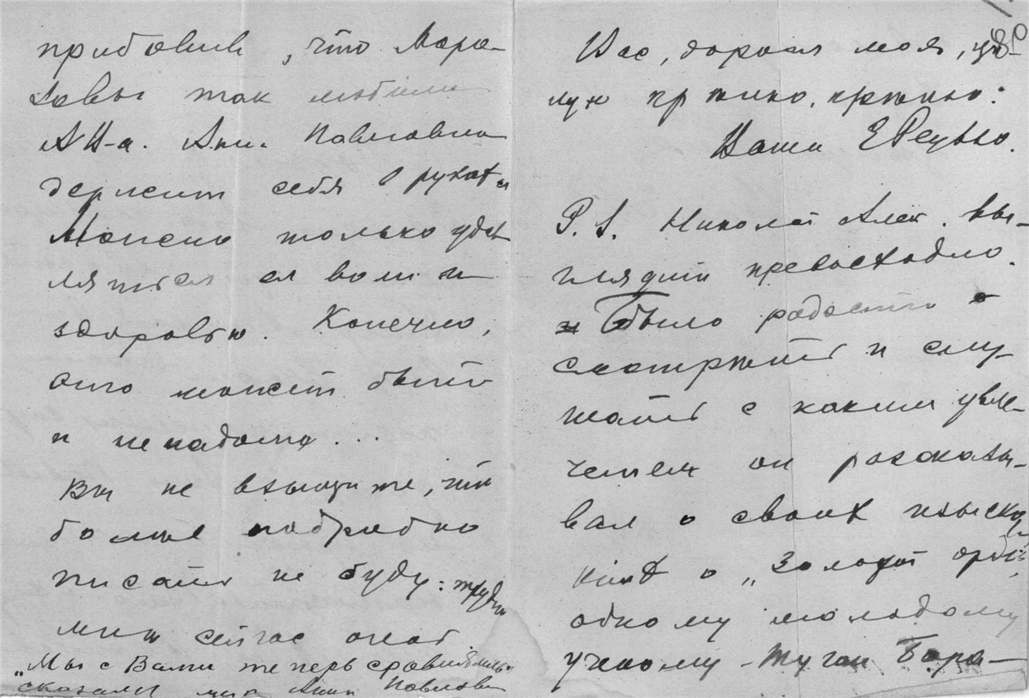 прибавив, что Моро-
зовы так любили
АН-а. Анна Павловна
держит себя в руках и
Можно только удив
ляться ея воли и
здоровью. Конечно,
это может быть
и ненадолго...
Вы не взыщите, что
больше подробно
писать не буду: трудно
мне сейчас очень.
"Мы с Вами теперь сравнялись"
сказала мне Анна Павловна
Вас, дорогая моя, це-
лую крепко, крепко:
Ваша Е
P. S. Николай Алек. вы-
глядит превосходно.
Было радостно
смотреть и слу-
шать с каким увле-
чением он рассказы-
вал о своих изыска
ниях о „Золотой орде"
одному молодому
ученому - Туган Бара-